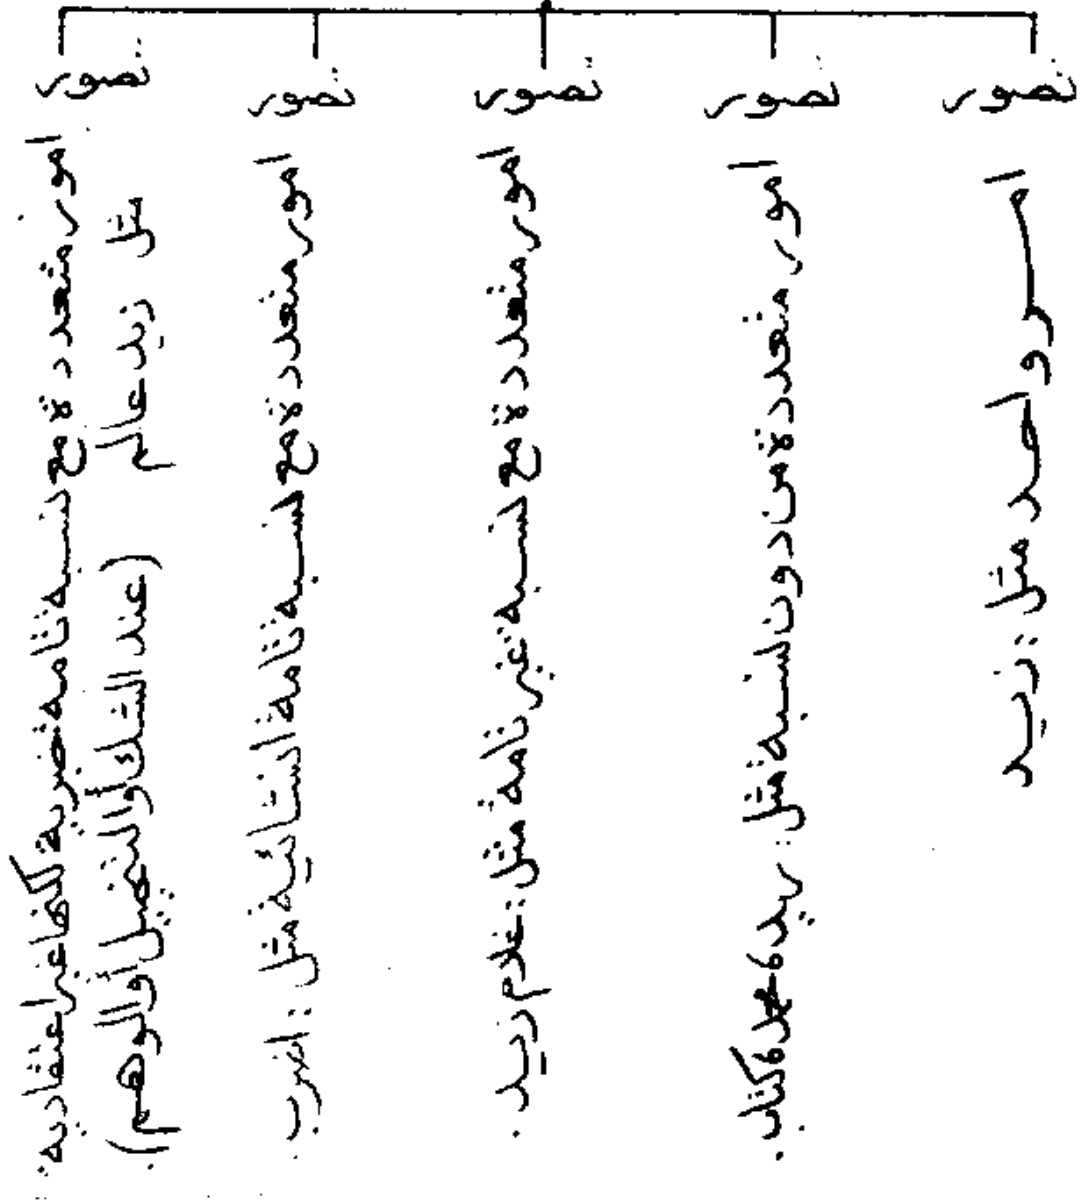 تصور
امر واحد مثل : زيد
تصور
امور متعددة من دون نسبة مثل : زيد، عمرو، كتاب.
تصور
امور متعددة مع نسبة غير تامة مثل : غلام زيد.
تصور
امور متعددة مع نسبة تامة انشائية مثل : اضرب.
تصور
امور متعددة مع نسبة تامة خبرية لكنها غير اعتقادية
مثل زيد عالم (عند الشك أو التخيل أو الوهم).